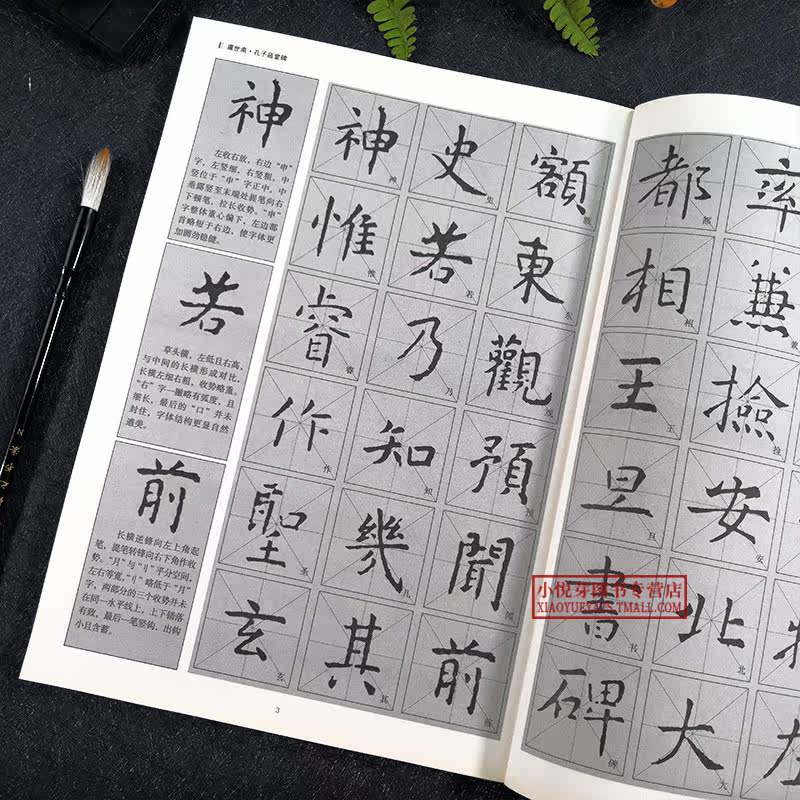 虞世南·孔子庙堂碑
神
左收右放，右边“申”
字，左竖细，右竖粗，中
竖位于“申”字正中，中
垂露竖至末端处提笔向右
下顿笔，拉长收势。“申”
字整体重心偏下，左边部
首略短于右边，使字体更
加圆劲稳健。
若
草头横，左低且右高，
与中间的长横形成对比，
长横左细右粗，收势略重。
“右”字一撇略有弧度，且
细长，最后的“口”并未
封住，字体结构更显自然
通美。
前
长横逆锋向左上角起
笔，提笔转锋向右下角作收
势。“月”与“刂”平分空间，
左右等宽，“刂”略低于“月”
字，两部分的三个收势并未
在同一水平线上，上下错落
有致，最后一笔竖钩，出钩
小且含蓄。
神 史 額
惟 若 東
睿 乃 觀
作 知 預
聖 幾 聞
玄 其 前
3
都 率
相 兼
王 撿
旦 安
書 北
碑 大
小悦芽图书专营店
XIAOYUEYATS.TMALL.COM